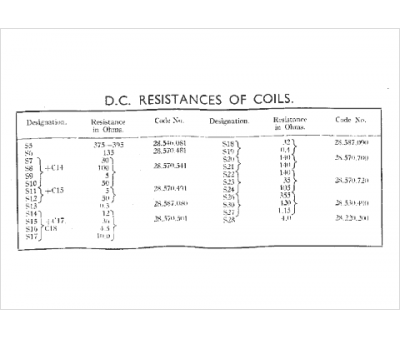 D.C. RESISTANCES OF COILS.
Designation. Resistance in Ohms. Code No. Designation. Resistance in Ohms. Code No.
S5 375-395 28.546.081 S18 32 28.587.090
S6 135 28.570.481 S19
S7 S20 140 28.570.700
S8 +C14 100 28.570.541 S21 140
S9 5 S22 140
S10 50 S23 35 28.570.720
S11 +C15 5 28.570.491 S24 105
S12 50
S13 28.587.080 120 28.530.490
S14 12 S27 1.15
S15 +C17 28.570.501 S28 28.220.200
S16 C18 4.5
S17